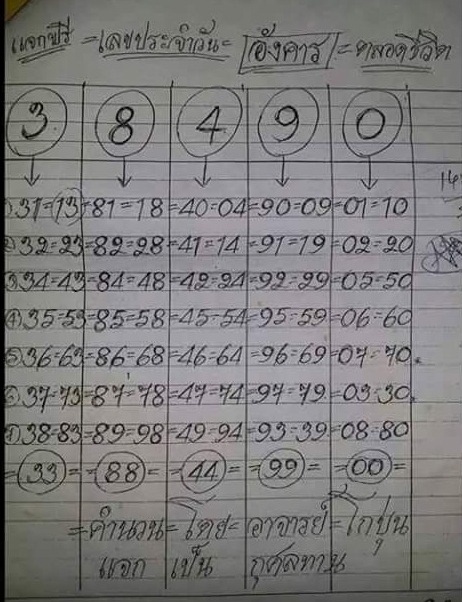 แจกฟรี =เลขประจำวัน= อังคาร = ตลอดชีวิต
3 8 4 9 0
①31=13=81=18=40=04=90=09=01=10
②32=23=82=28=41=14=91=19=02=20
③34=43=84=48=42=24=92=29=05=50
④35=53=85=58=45=54=95=59=06=60
⑤36=63=86=68=46=64=96=69=07=70
⑥37=73=87=78=47=74=97=79=03=30
⑦38=83=89=98=49=94=93=39=08=80
=33= =88= =44= =99= =00=
=คำนวน=โดย=อาจารย์=ไก่ขุน
แจก เป็น กุศลทาน